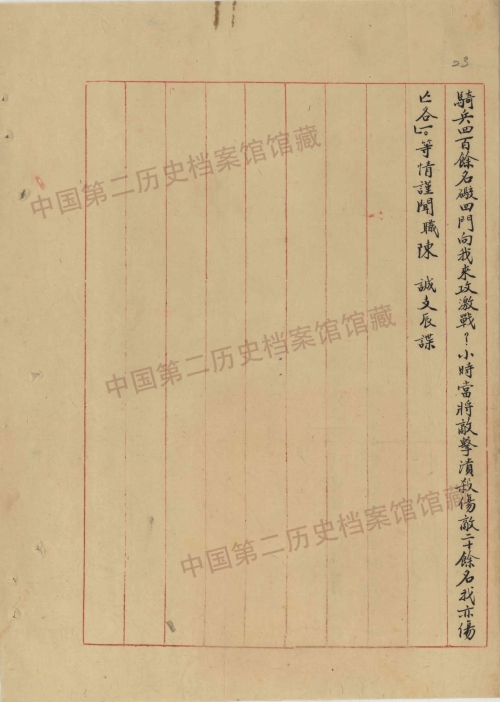 23
騎兵四百餘名礮四門向我來攻激戰?小時當將敵擊潰殺傷敵二十餘名我亦傷
亡各等情謹聞職陳 誠支辰諜
中国第二历史档案馆馆藏
中国第二历史档案馆馆藏
中国第二历史档案馆馆藏